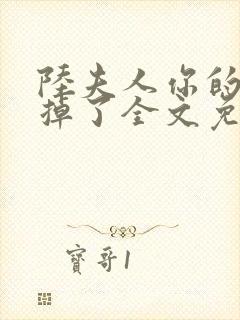 陆夫人你的
掉了全文免
寶哥1